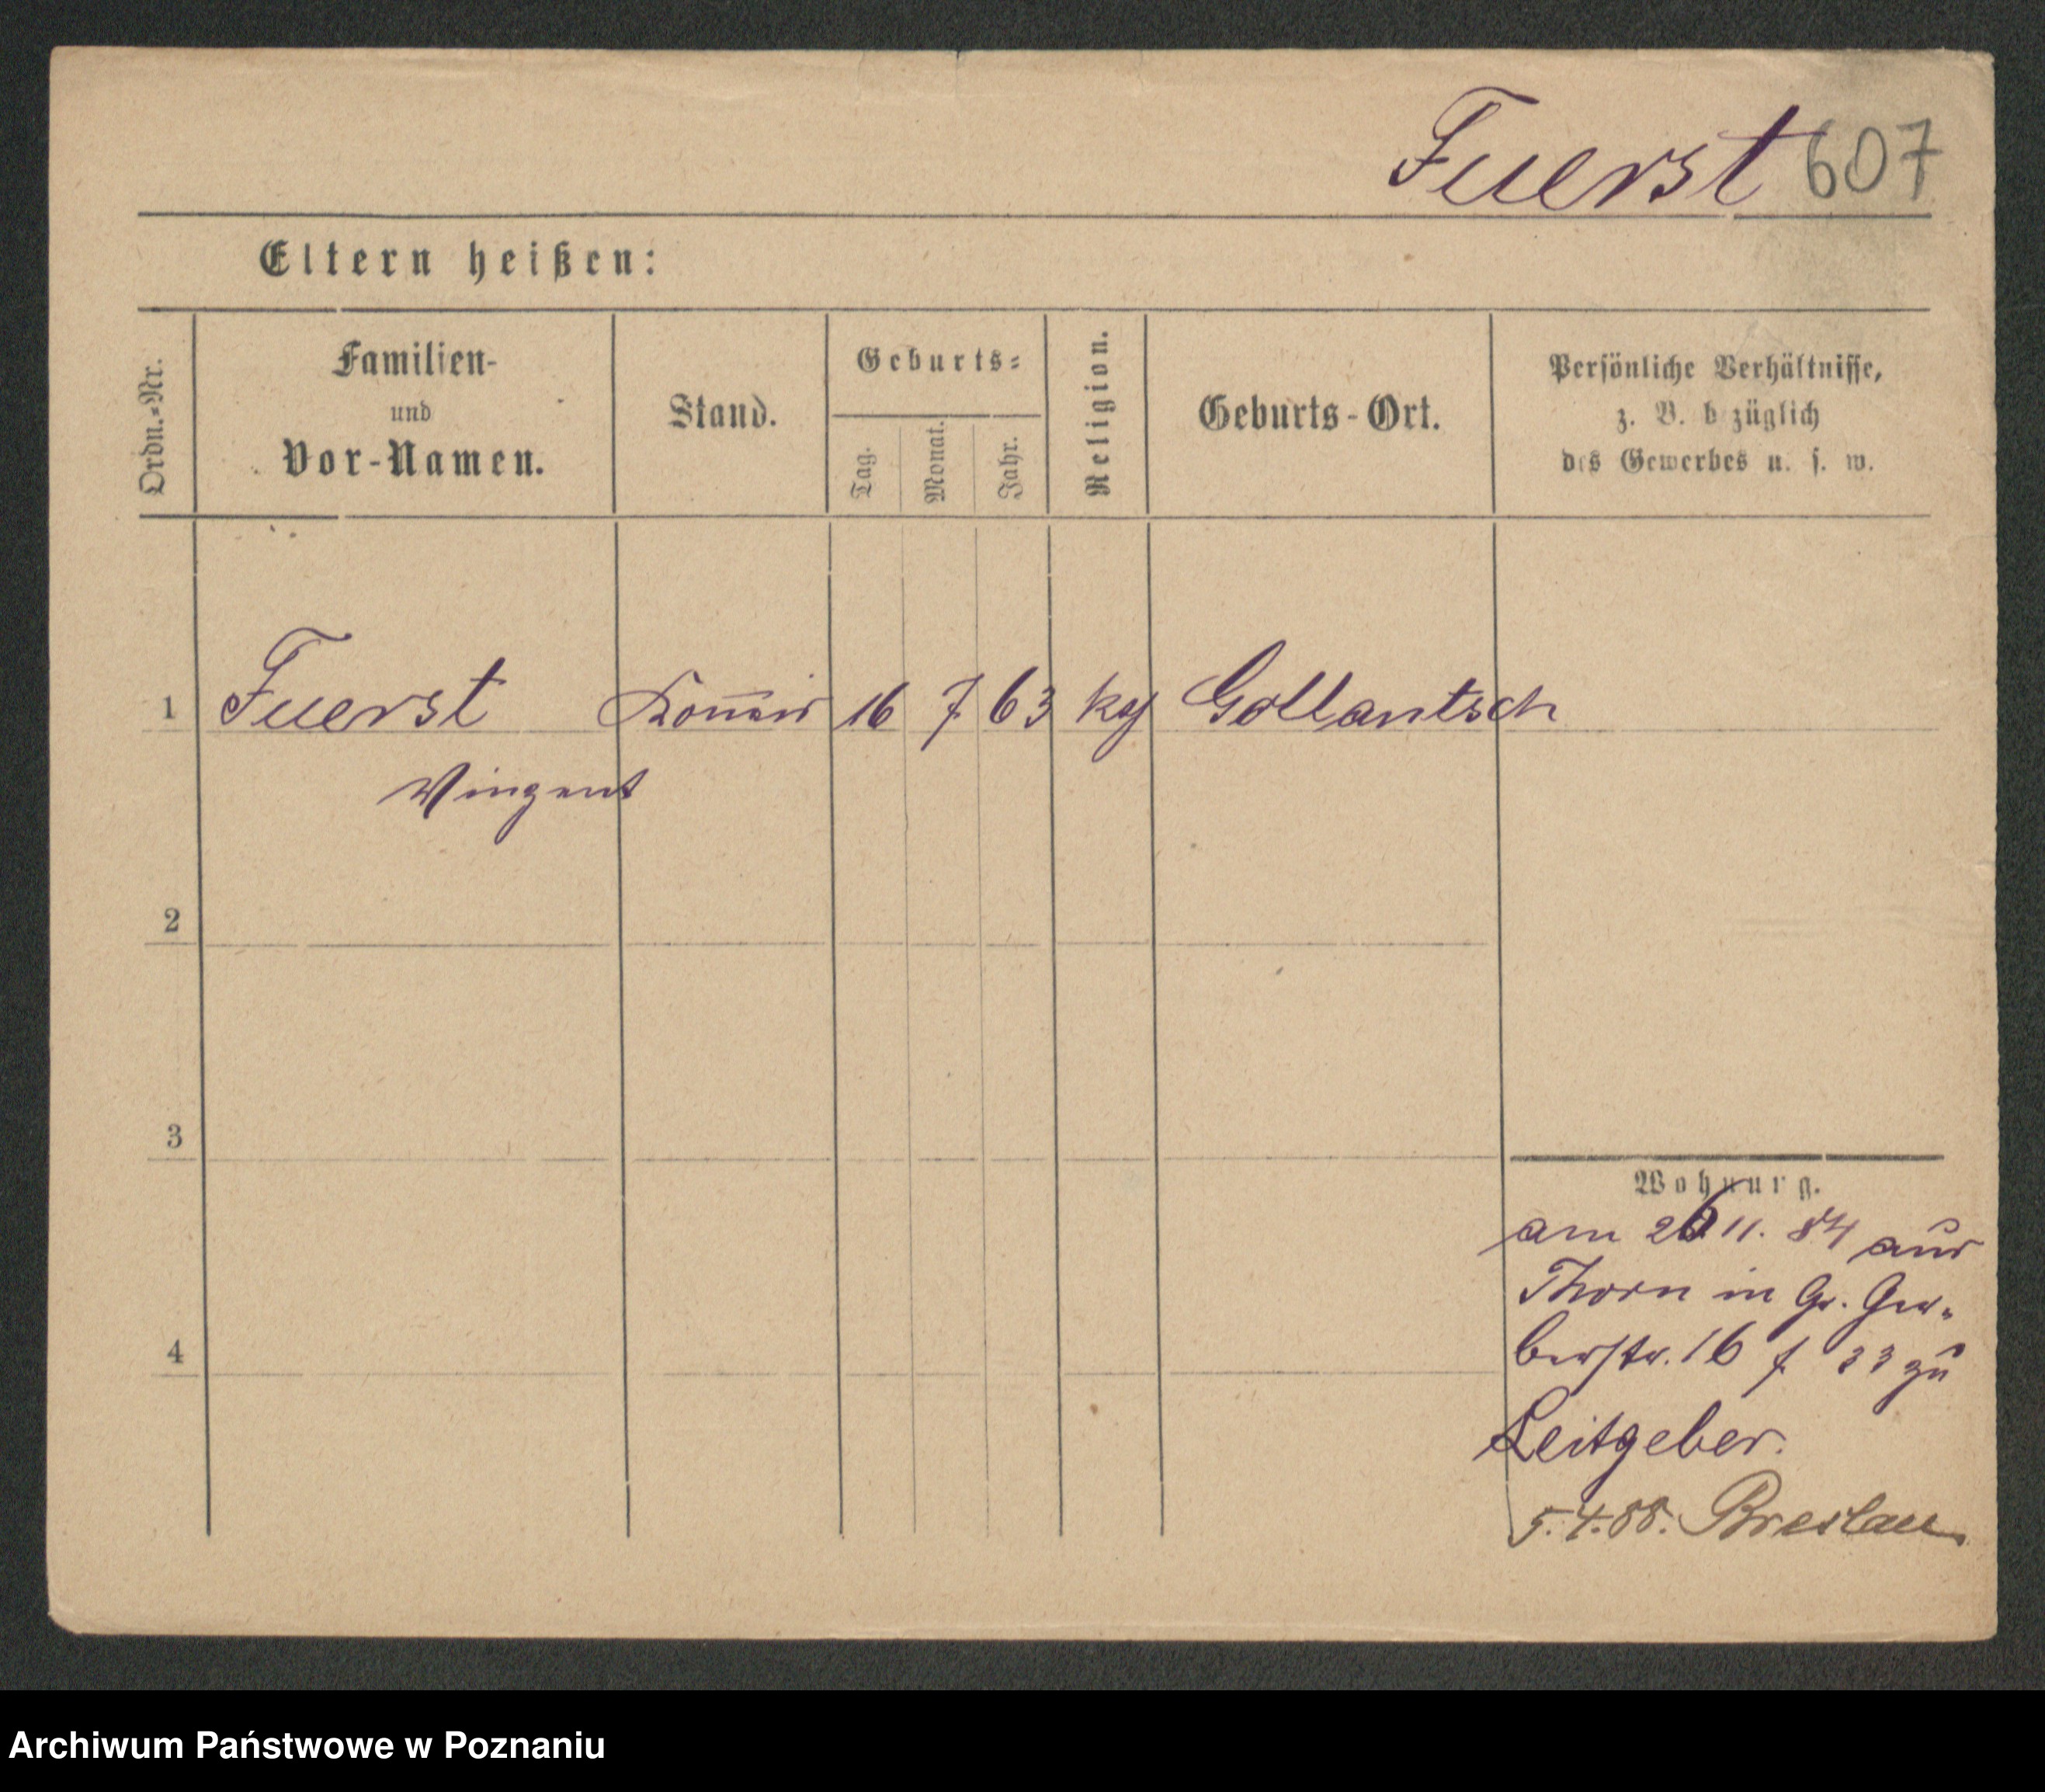 Fuerst 607
Eltern heißen:
Ordn.=Nr.
Familien-
und
Vor-Namen.
Stand.
Geburts=
Tag.
Monat.
Jahr.
Religion.
Geburts-Ort.
Persönliche Verhältnisse,
z. B. b züglich
des Gewerbes u. s. w.
1 Fuerst Kom̅is 16 7 63 kg Gollantsch
Vinzent
2
3
4
Wohnung.
am 26 11. 84 aus
Thorn in Gr. Ger-
berstr. 16 f 33 zu
Leitgeber.
5.4.88. Breslau
Archiwum Państwowe w Poznaniu